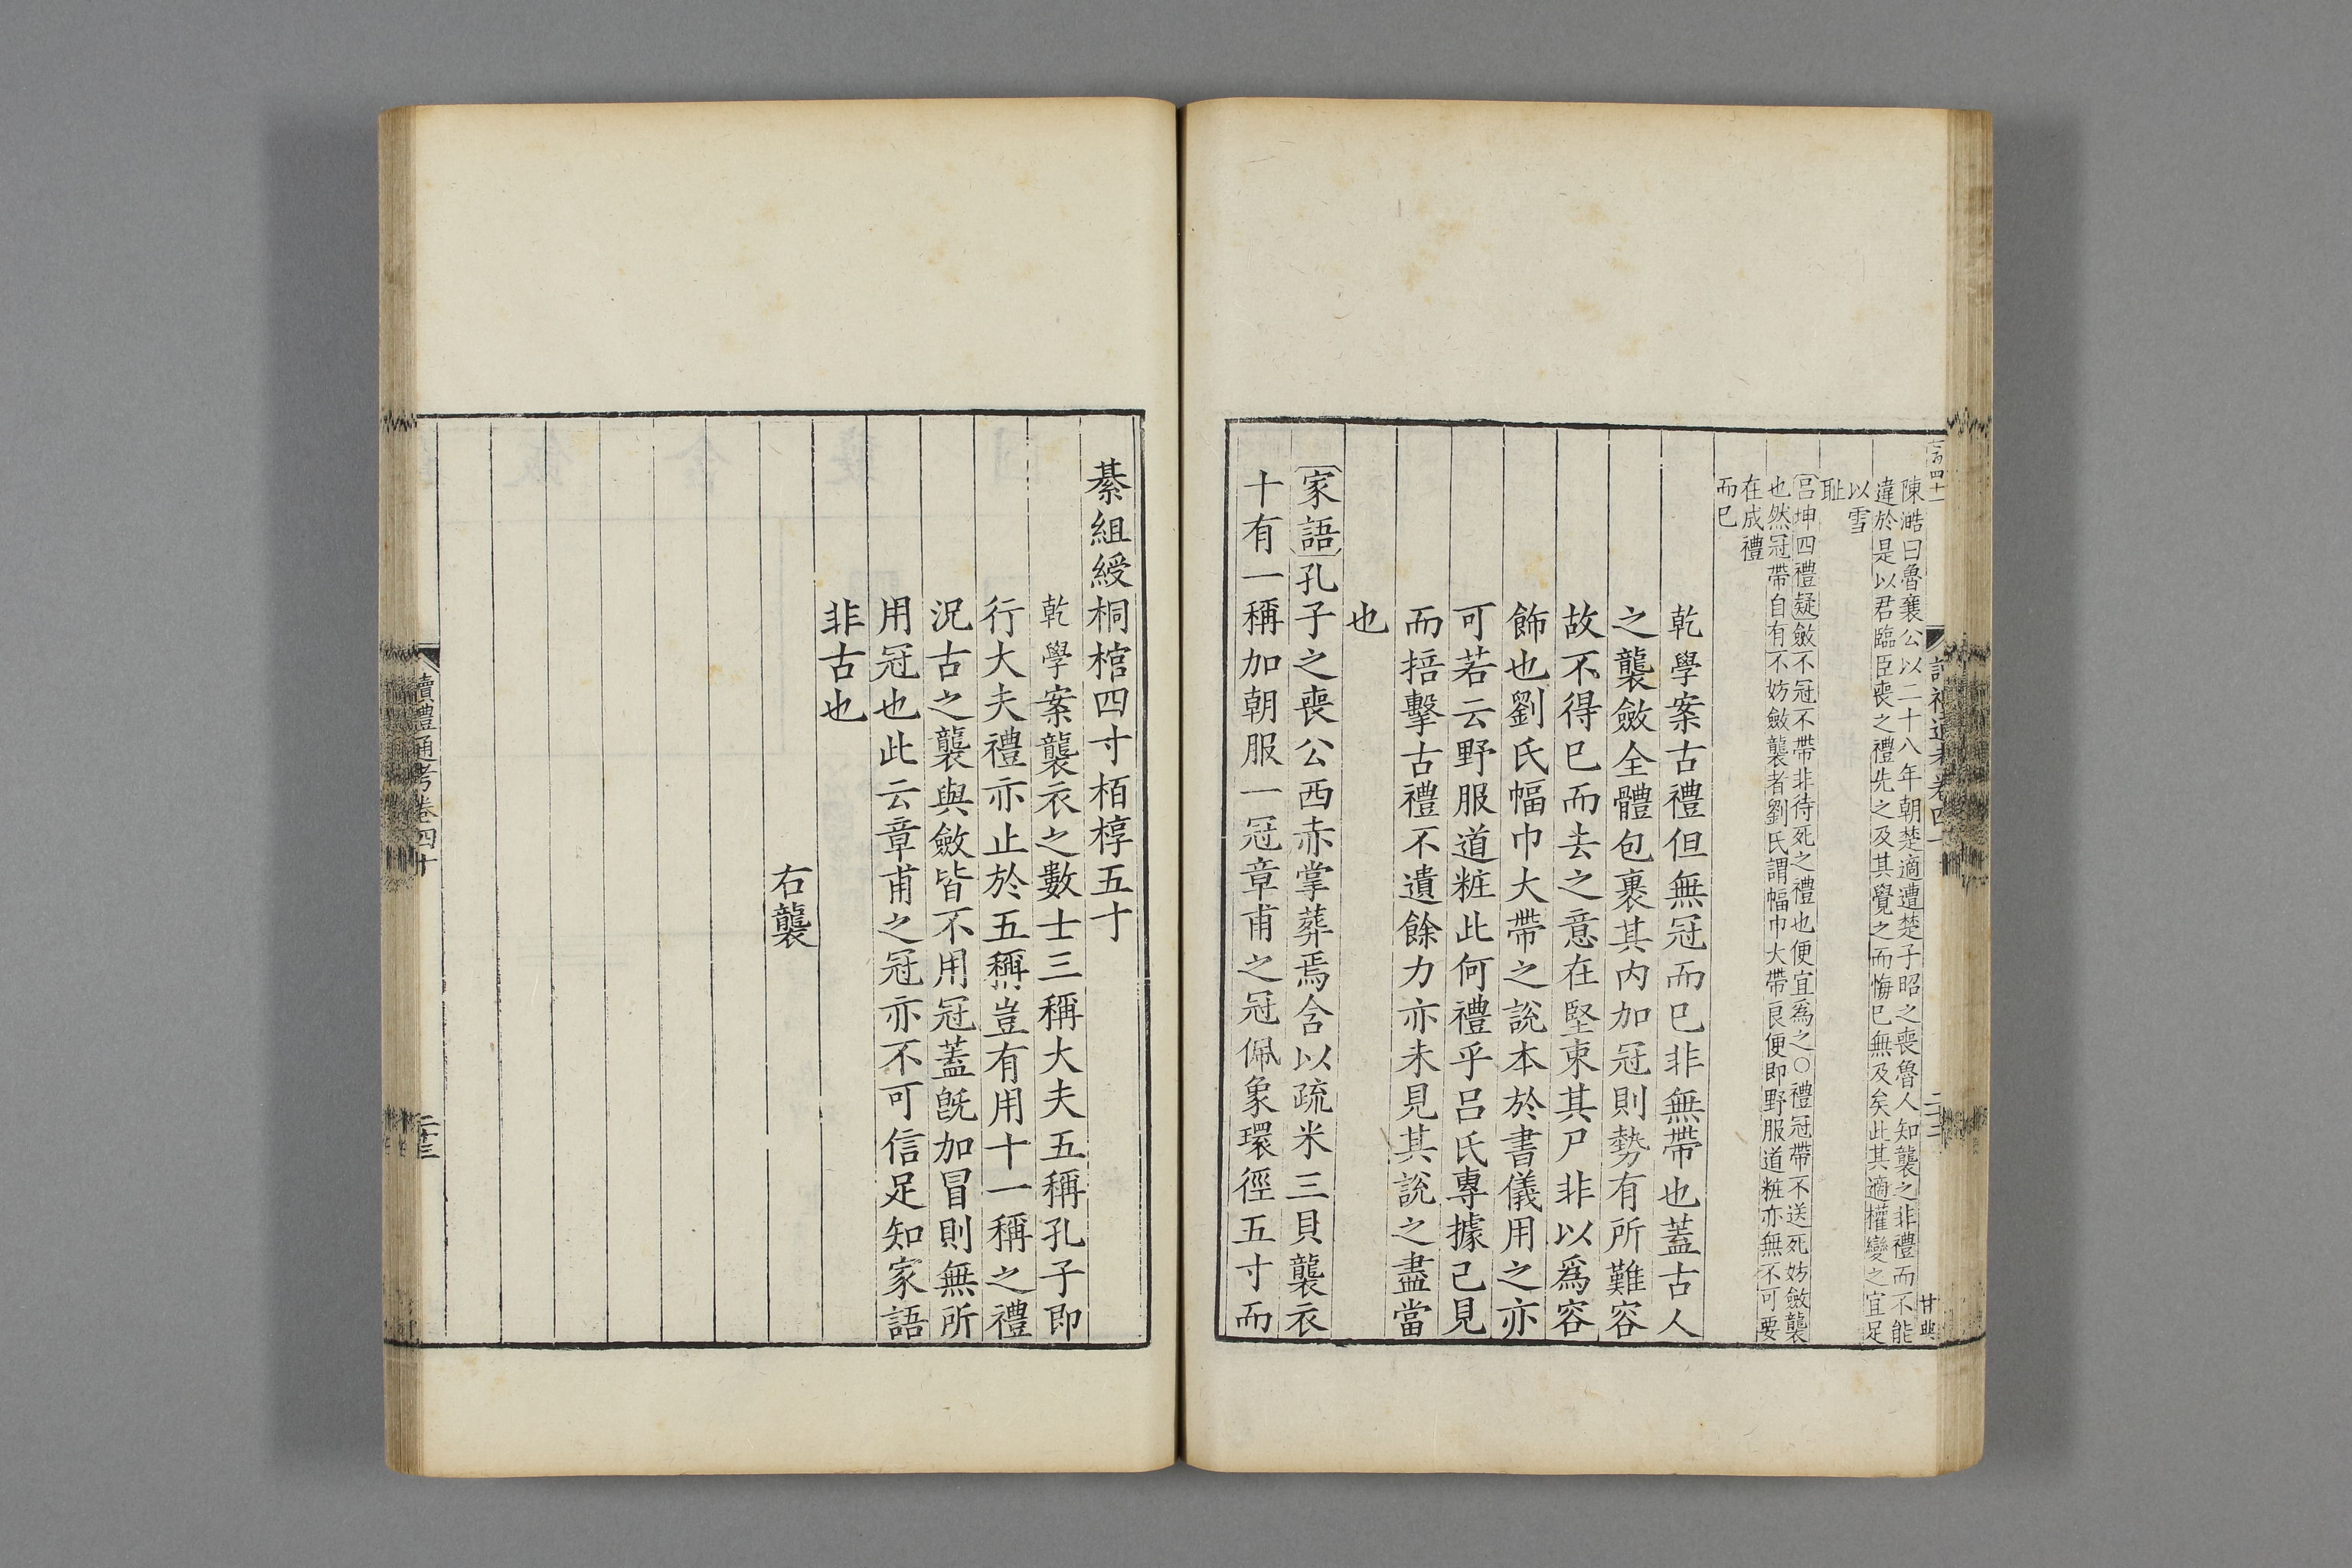 陳澔曰魯襄公以二十八年朝楚適遭楚子昭之喪魯人知襲之非禮而不能
違於是以君臨臣喪之禮先之及其覺之而悔巳無及矣此其適權變之宜足
以雪
耻
呂坤四禮疑斂不冠不帶非待死之禮也便宜爲之○禮冠帶不送死妨斂襲
也然冠帶自有不妨斂襲者劉氏謂幅巾大帶良便即野服道粧亦無不可要
在成禮
而巳
乾學案古禮但無冠而巳非無帶也蓋古人
之襲斂全體包裹其内加冠則勢有所難容
故不得巳而去之意在堅束其尸非以爲容
飾也劉氏幅巾大帶之說本於書儀用之亦
可若云野服道粧此何禮乎呂氏專據己見
而掊擊古禮不遺餘力亦未見其說之盡當
也
家語孔子之喪公西赤掌葬焉含以疏米三貝襲衣
十有一稱加朝服一冠章甫之冠佩象環徑五寸而
甘典
綦組綬桐棺四寸栢椁五寸
乾學案襲衣之數士三稱大夫五稱孔子即
行大夫禮亦止於五稱豈有用十一稱之禮
況古之襲與斂皆不用冠蓋旣加冒則無所
用冠也此云章甫之冠亦不可信足知家語
非古也
右襲
讀禮通考卷四十